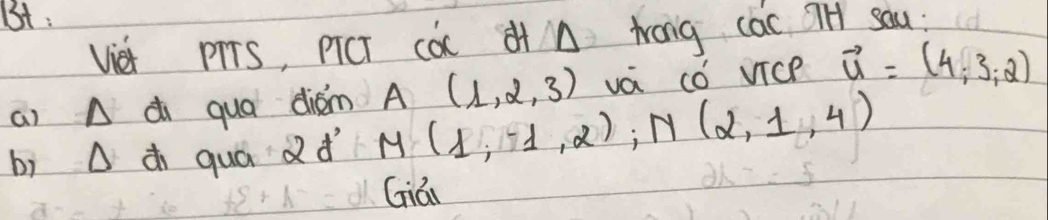 Bt:
Viết PTTS, PTCT các đt Δ trong các TH sau:
a) Δ đi qua điểm A (1,2,3) và có VTCP u⃗ = (4;3;2)
b) Δ đi qua 2đ' M (1;-1,2); N (2,1,4)
Giải